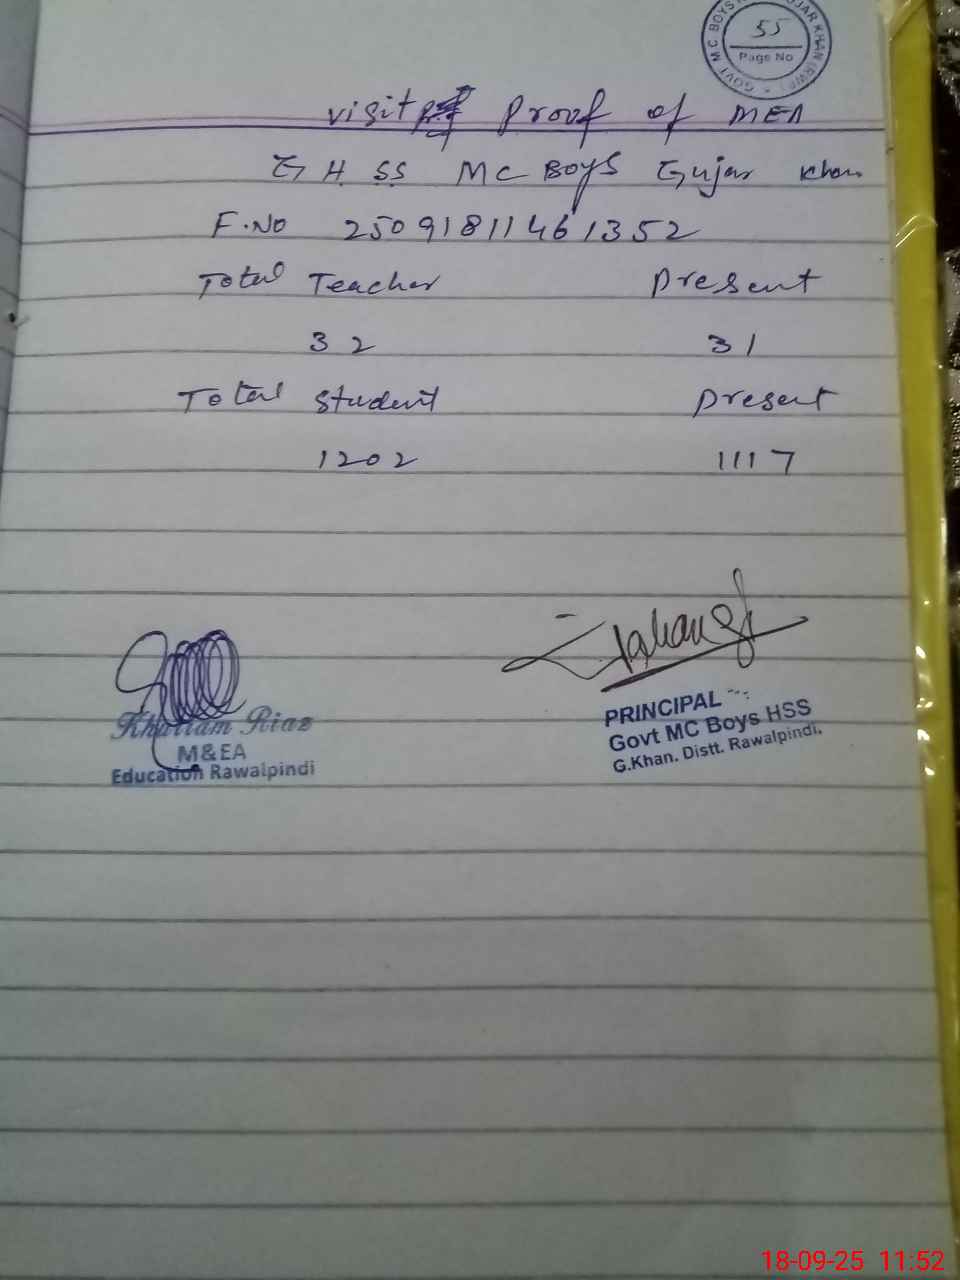 GOVT MC BOYS GUJAR KHAN (RWP)
55
Page No
visit Proof of MEA
G H SS MC Boys Gujar Khan
F.No 25091811461352
Total Teacher Present
32 31
Total Student Present
1202 1117
Khurram Riaz
M&EA
Education Rawalpindi
Jahangir
PRINCIPAL
Govt MC Boys HSS
G.Khan. Distt. Rawalpindi.
18-09-25 11:52